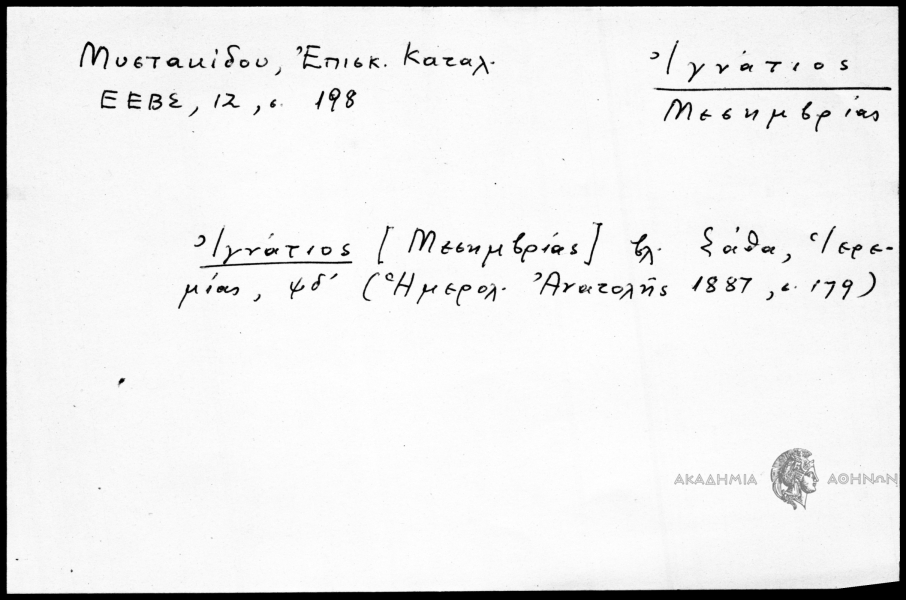 Μυστακίδου, Ἐπισκ. Καταλ.
ΕΕΒΣ, 12, σ. 198
Ἰγνάτιος
Μεσημβρίας
Ἰγνάτιος [Μεσημβρίας] βλ. Σάθα, Ἱερε-
μίας, ϟδ' (Ἡμερολ. Ἀνατολῆς 1887, σ. 179)
ΑΚΑΔΗΜΙΑ ΑΘΗΝΩΝ